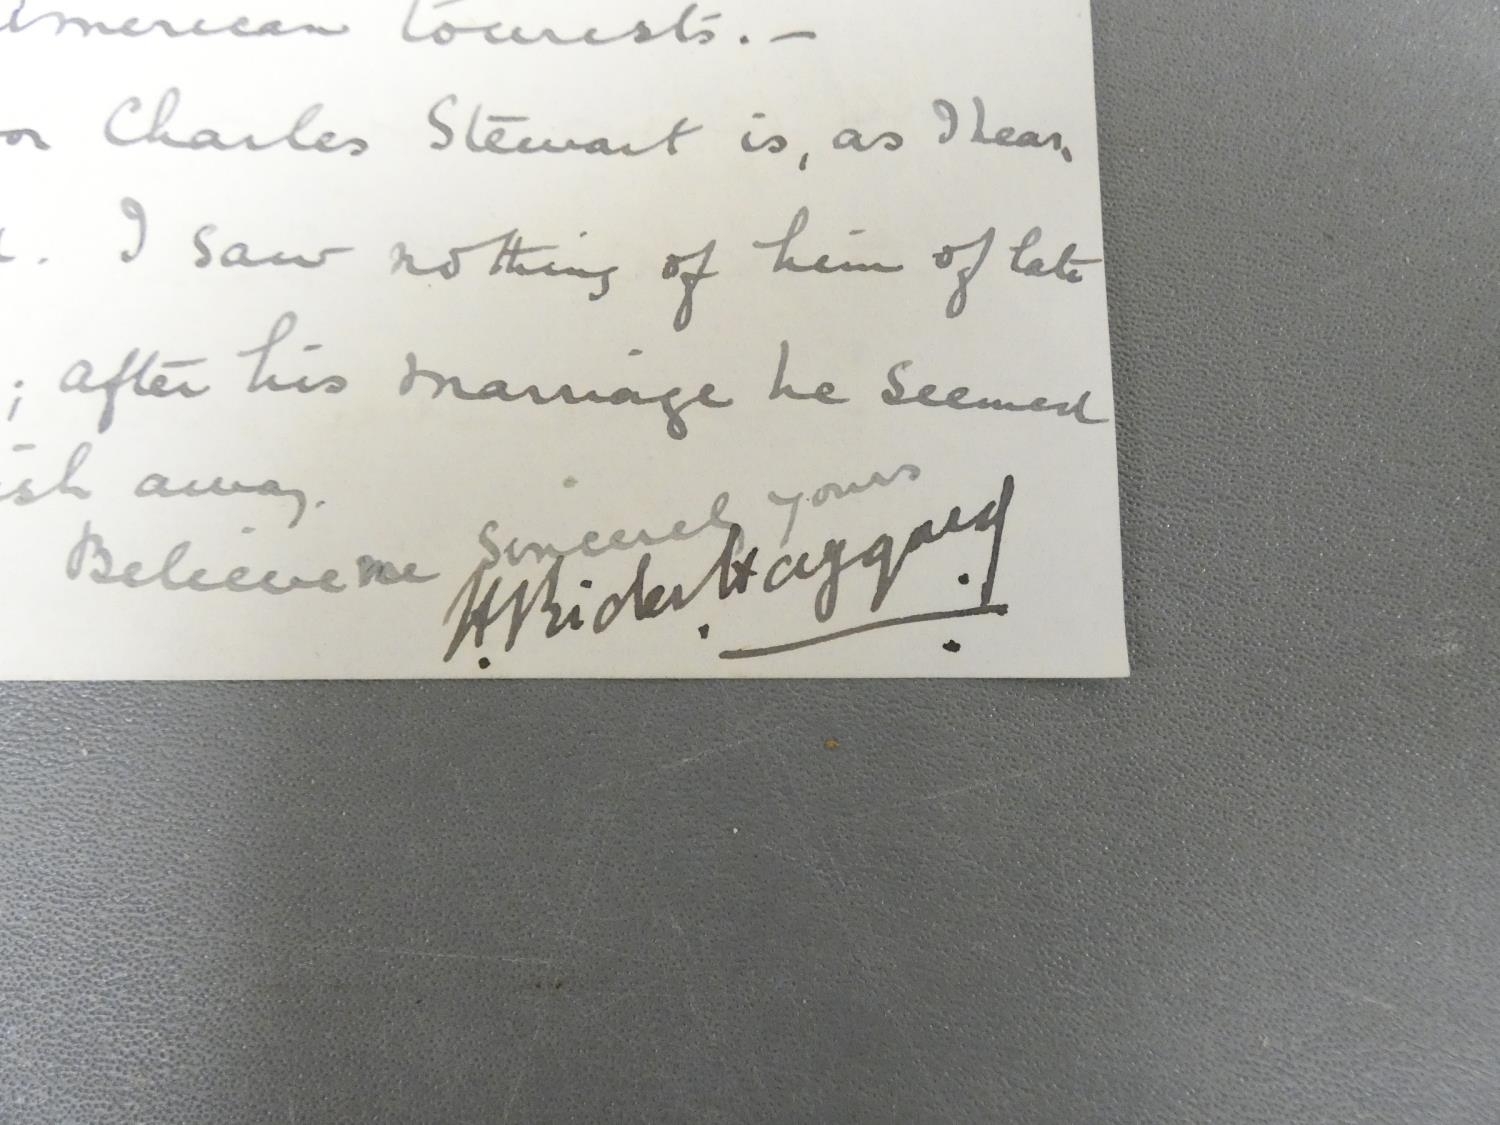 American tourists. —
Charles Stewart is, as I hear,
. I saw nothing of him of late
; after his marriage he seemed
ish away.
Believe me sincerely yours
H Rider Haggard